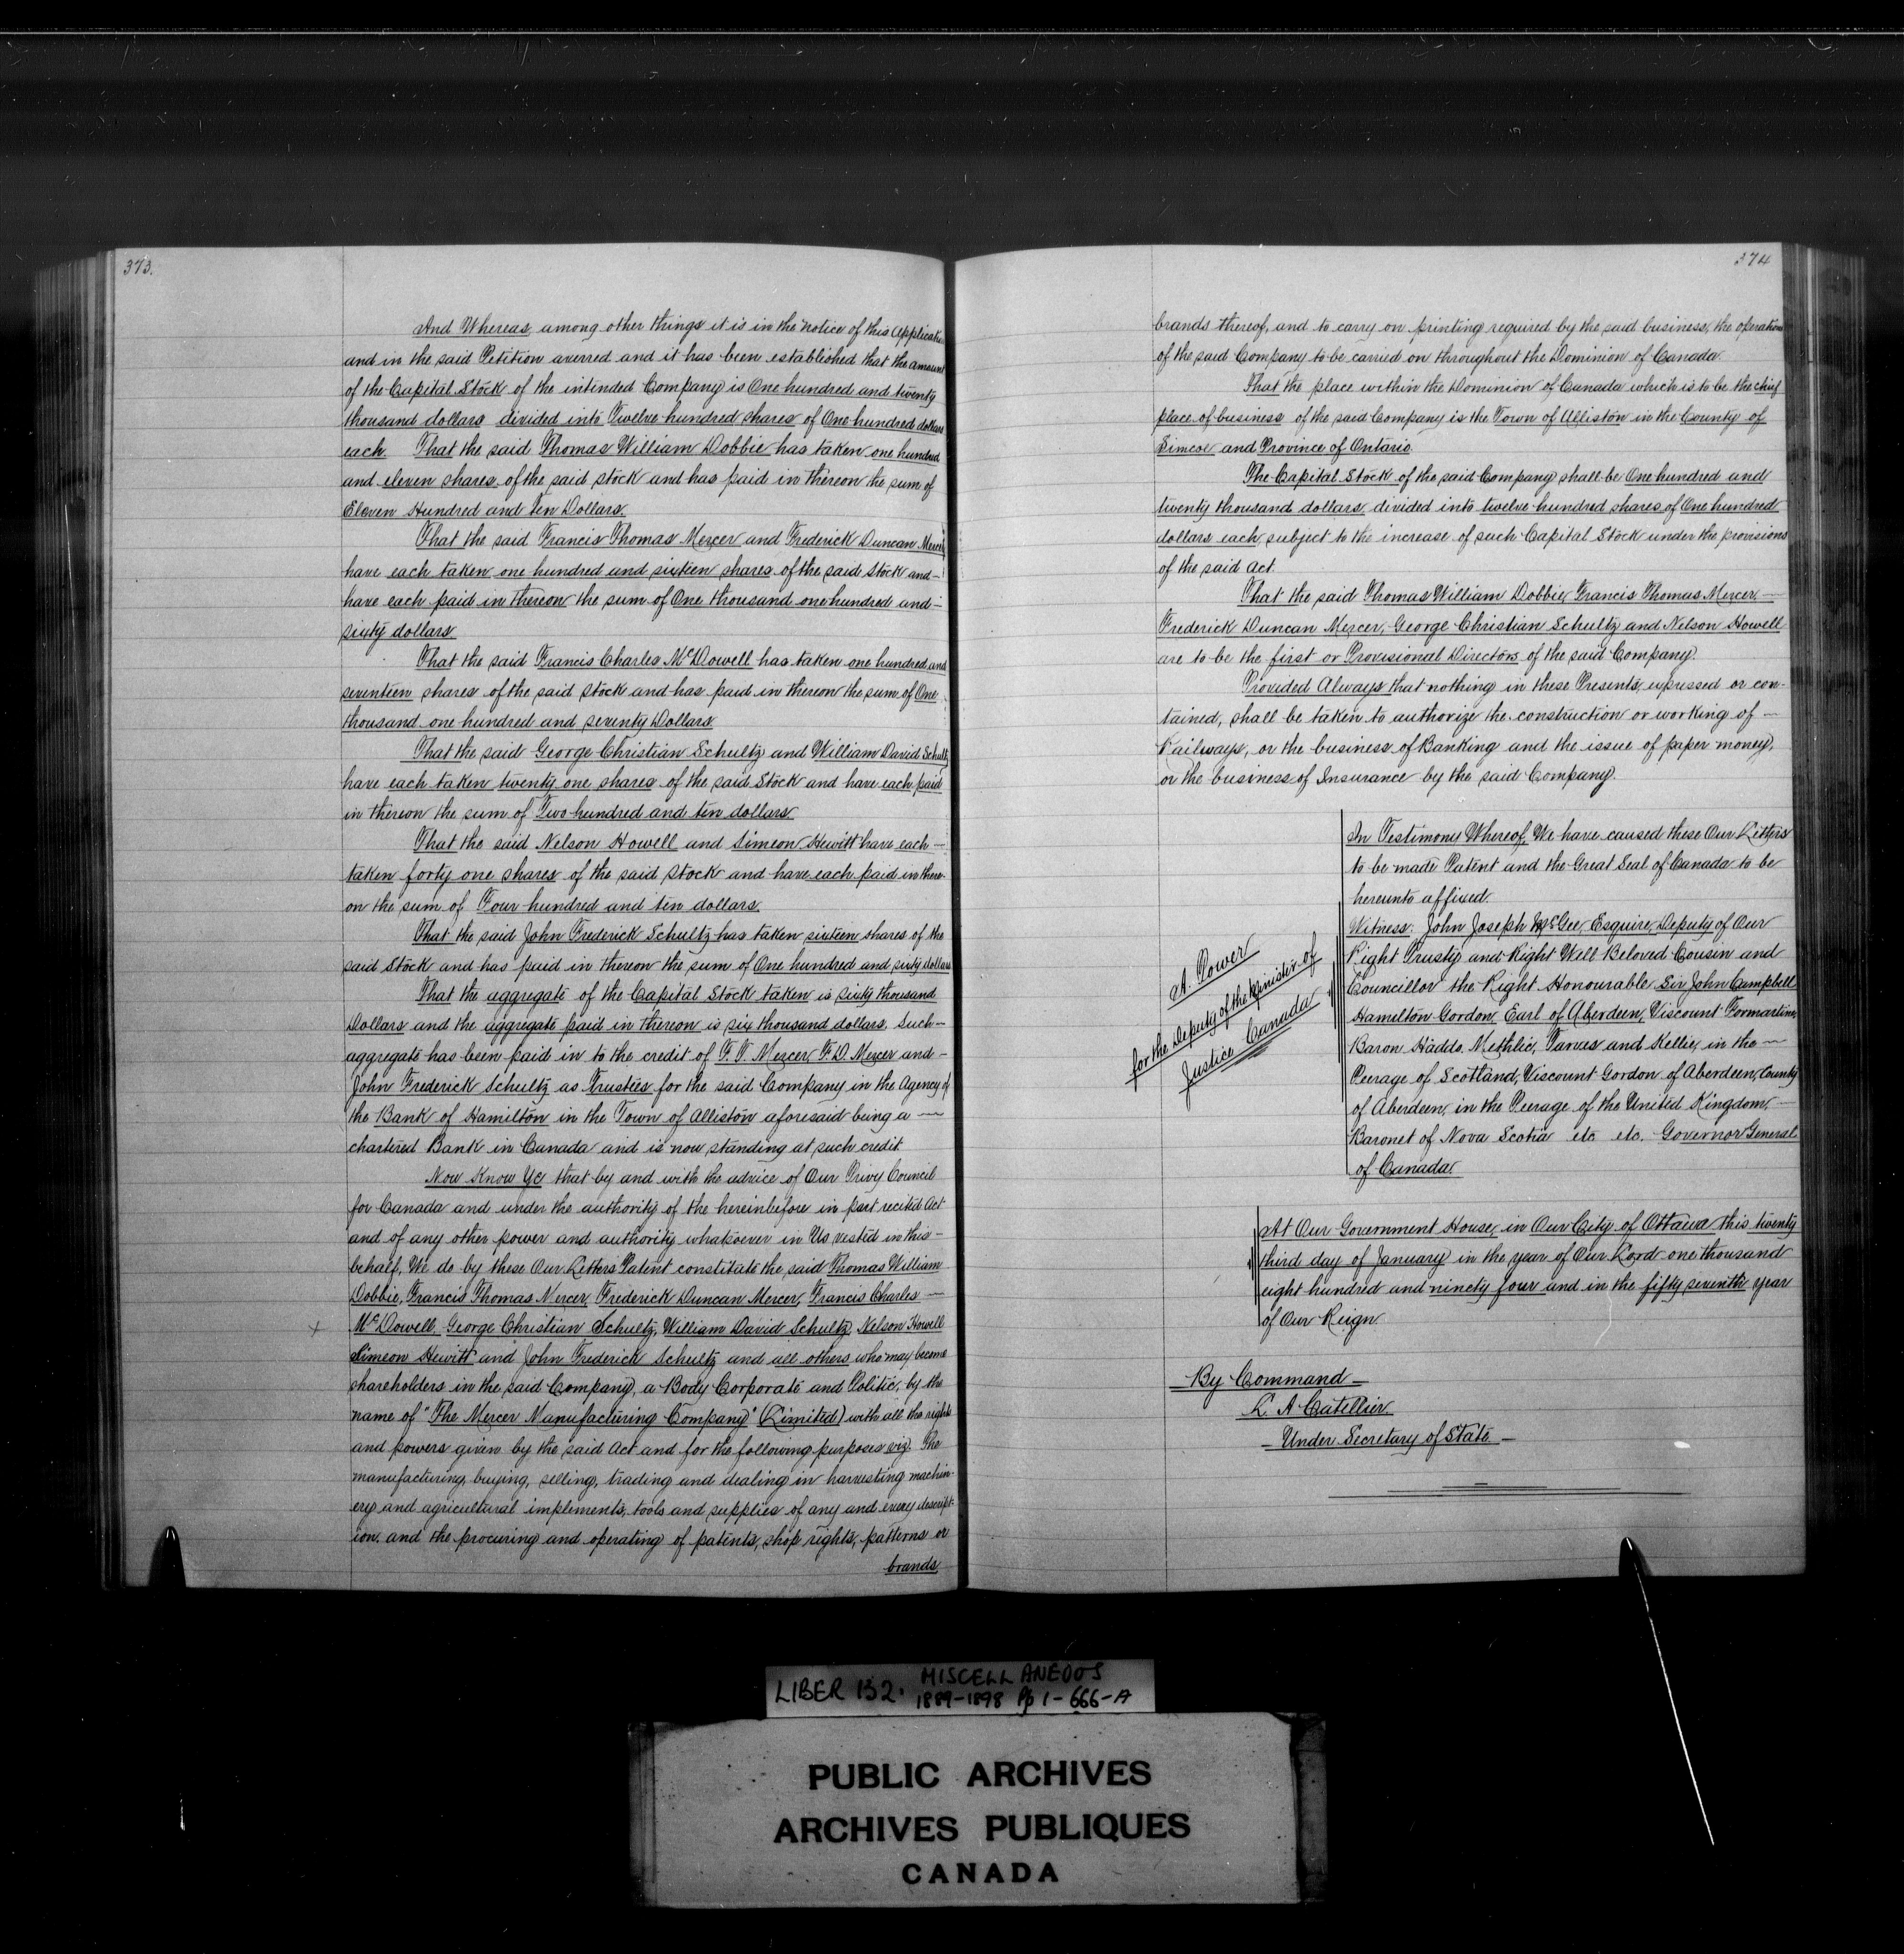 373.
And Whereas, among other things it is in the notice of this Applicati
and in the said Petition averred and it has been established that the amount
of the Capital Stock of the intended Company is One hundred and twenty
thousand dollars divided into Twelve hundred shares of One hundred dollars
each. That the said Thomas William Dobbie has taken one hundred
and eleven shares of the said stock and has paid in thereon the sum of
Eleven Hundred and Ten Dollars.
That the said Francis Thomas Mercer and Frederick Duncan Mercer
have each taken one hundred and sixteen shares of the said Stock and-
have each paid in thereon the sum of One thousand one hundred and-
sixty dollars
That the said Francis Charles McDowell has taken one hundred and
seventeen shares of the said Stock and has paid in thereon the sum of One
thousand one hundred and seventy Dollars
That the said George Christian Schultz and William David Schultz
have each taken twenty one shares of the said Stock and have each paid
in thereon the sum of Two hundred and ten dollars.
That the said Nelson Howell and Simeon Hewitt have each -
taken forty one shares of the said Stock and have each paid in there-
on the sum of Four hundred and ten dollars.
That the said John Frederick Schultz has taken sixteen shares of the
said Stock and has paid in thereon the sum of One hundred and sixty dollars
That the aggregate of the Capital Stock taken is sixty thousand
Dollars and the aggregate paid in thereon is six thousand dollars. Such-
aggregate has been paid in to the credit of F. T. Mercer, F. D. Mercer and-
John Frederick Schultz as Trustees for the said Company in the Agency of
the Bank of Hamilton in the Town of Alliston aforesaid being a -
chartered Bank in Canada and is now standing at such credit
Now Know Ye that by and with the advice of Our Privy Council
for Canada and under the authority of the hereinbefore in part recited Act
and of any other power and authority whatsoever in Us vested in this -
behalf, We do by these Our Letters Patent constitute the said Thomas William
Dobbie, Francis Thomas Mercer, Frederick Duncan Mercer, Francis Charles -
McDowell, George Christian Schultz, William David Schultz, Nelson Howell
Simeon Hewitt and John Frederick Schultz and all others who may become
shareholders in the said Company, a Body Corporate and Politic, by the
name of "The Mercer Manufacturing Company" (Limited) with all the rights
and powers given by the said Act and for the following purposes viz. The
manufacturing, buying, selling, trading and dealing in harvesting machin-
ery and agricultural implements, tools and supplies of any and every descript-
ion and the procuring and operating of patents, shop rights, patterns or
brands
374
brands thereof, and to carry on printing required by the said business, the operations
of the said Company to be carried on throughout the Dominion of Canada
That the place within the Dominion of Canada which is to be the chief
place of business of the said Company is the Town of Alliston in the County of
Simcoe and Province of Ontario.
The Capital Stock of the said Company shall be One hundred and
twenty thousand dollars, divided into twelve hundred shares of One hundred
dollars each, subject to the increase of such Capital Stock under the provisions
of the said Act.
That the said Thomas William Dobbie, Francis Thomas Mercer, -
Frederick Duncan Mercer, George Christian Schultz and Nelson Howell
are to be the first or Provisional Directors of the said Company.
Provided Always that nothing in these Presents, expressed or con-
tained, shall be taken to authorize the construction or working of -
Railways, or the business of Banking and the issue of paper money,
or the business of Insurance by the said Company.
In Testimony Whereof, We have caused these Our Letters
to be made Patent and the Great Seal of Canada to be
hereunto affixed.
Witness: John Joseph McGee, Esquire, Deputy of Our
Right Trusty and Right Well Beloved Cousin and
Councillor the Right Honourable Sir John Campbell
Hamilton Gordon, Earl of Aberdeen, Viscount Formartine,
Baron Haddo, Methlic, Tarves and Kellie, in the -
Peerage of Scotland, Viscount Gordon of Aberdeen, County
of Aberdeen, in the Peerage of the United Kingdom, -
Baronet of Nova Scotia etc etc. Governor General
of Canada
A. Power
for the Deputy of the Minister of
Justice Canada
At Our Government House, in Our City of Ottawa this twenty
third day of January in the year of Our Lord one thousand
eight hundred and ninety four and in the fifty seventh year
of Our Reign
By Command -
L. A Catellier
- Under Secretary of State -
LIBER 132. MISCELLANEOUS
1889-1898 Pp 1-666-A
PUBLIC ARCHIVES
ARCHIVES PUBLIQUES
CANADA